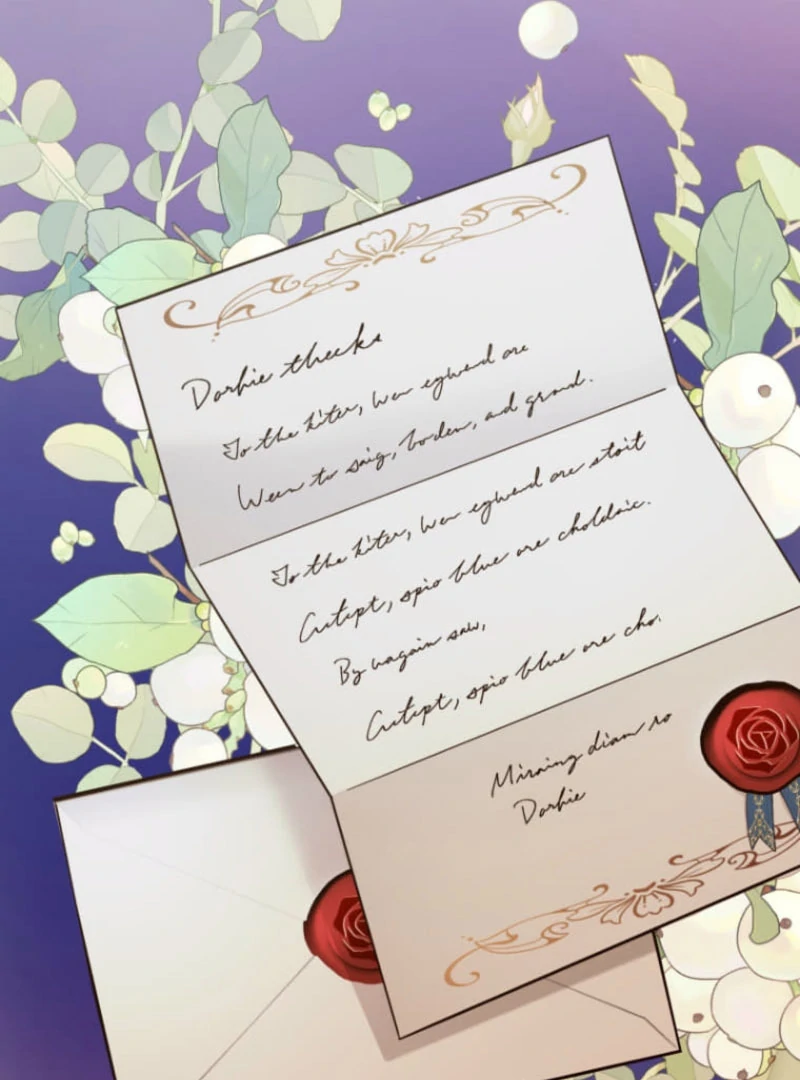 Dorhie theeks
To the kiter, wer egwend ore
Ween to saig, borden, and grond.
To the kiter, wer egwend ore stoit
Cutept, spio blue ore choldaic.
By wagain saw,
Cutept, spio blue ore cho.
Miraing dian ro
Dorhie